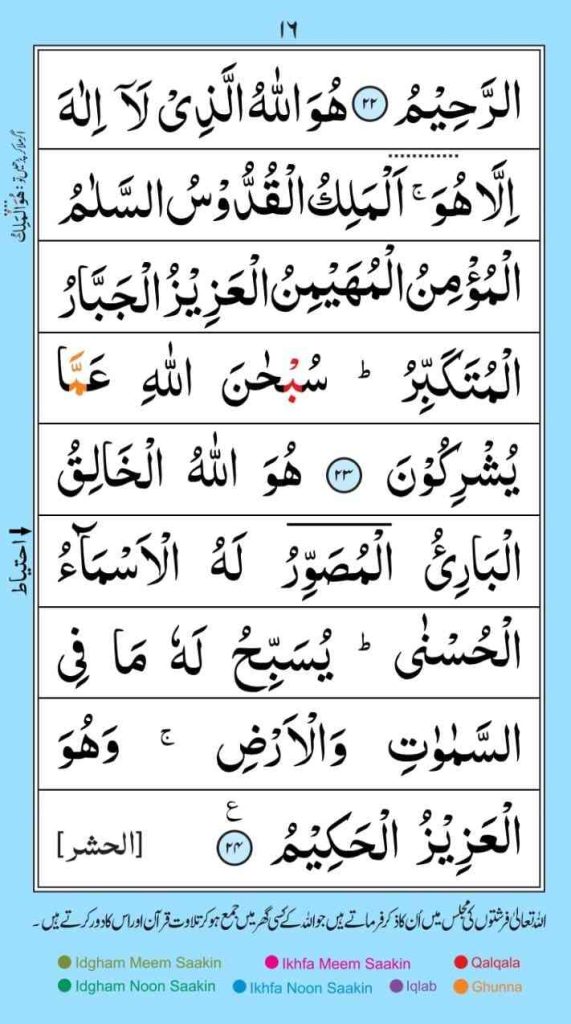 ١٦
الرَّحِيْمُ ﴿٢٢﴾ هُوَ اللّٰهُ الَّذِيْ لَآ اِلٰهَ
اِلَّا هُوَ ۚ اَلْمَلِكُ الْقُدُّوْسُ السَّلٰمُ
الْمُؤْمِنُ الْمُهَيْمِنُ الْعَزِيْزُ الْجَبَّارُ
الْمُتَكَبِّرُ ؕ سُبْحٰنَ اللّٰهِ عَمَّا
يُشْرِكُوْنَ ﴿٢٣﴾ هُوَ اللّٰهُ الْخَالِقُ
الْبَارِئُ الْمُصَوِّرُ لَهُ الْاَسْمَآءُ
الْحُسْنٰى ؕ يُسَبِّحُ لَهٗ مَا فِي
السَّمٰوٰتِ وَالْاَرْضِ ۚ وَهُوَ
الْعَزِيْزُ الْحَكِيْمُ ﴿٢٤﴾ ع [الحشر]
اگر ملا کر پڑھیں تو: هُوَ الْمَلِكُ
احتیاط
اللہ تعالیٰ فرشتوں کی مجلس میں اُن کا ذکر فرماتے ہیں جو اللہ کے کسی گھر میں جمع ہو کر تلاوت قرآن اور اس کا دور کرتے ہیں۔
Idgham Meem Saakin Ikhfa Meem Saakin Qalqala
Idgham Noon Saakin Ikhfa Noon Saakin Iqlab Ghunna